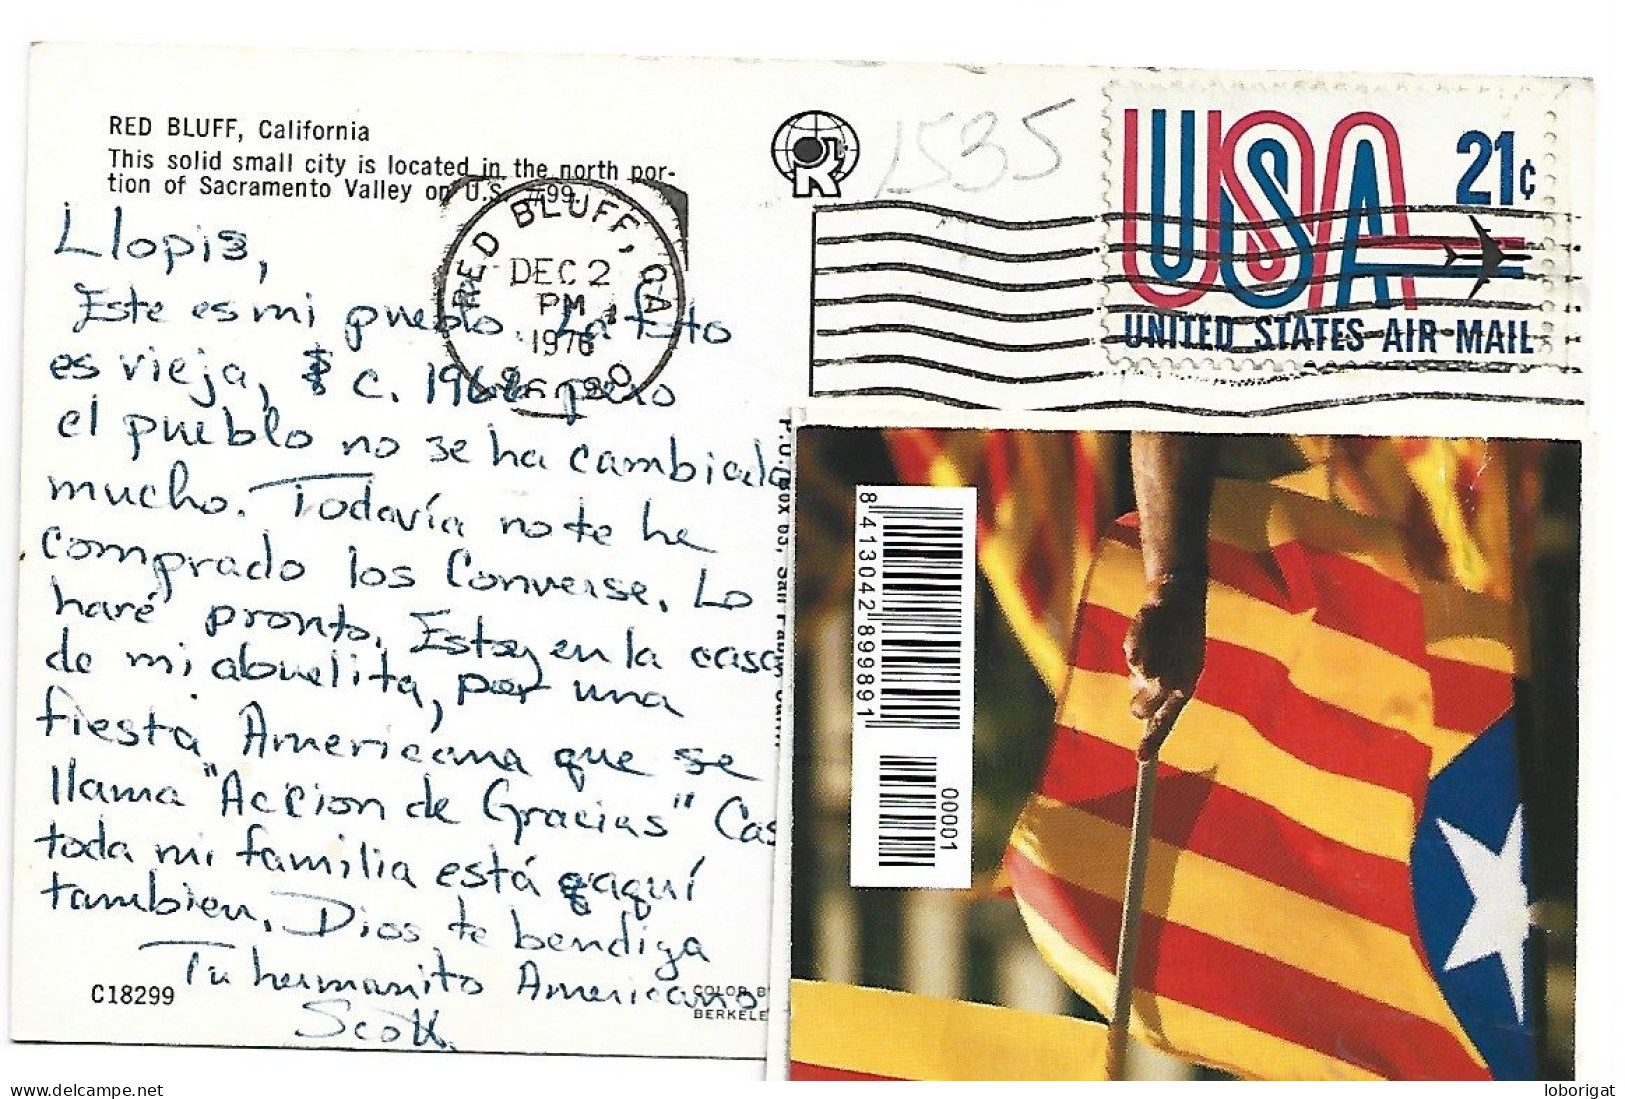 RED BLUFF, California
This solid small city is located in the north por-
tion of Sacramento Valley on U.S. #99.
Llopis,
Este es mi pueblo. La foto
es vieja, c. 1968 pero
el pueblo no se ha cambiado
mucho. Todavía no te he
comprado los Converse. Lo
haré pronto. Estoy en la casa
de mi abuelita, por una
fiesta Americana que se
llama "Accion de Gracias" Cas
toda mi familia está aquí
tambien. Dios te bendiga
Tu hermanito Americano
Scott
C18299
COLOR B
BERKELE
RED BLUFF, CA
DEC 2
PM
1976
1535
USA
21¢
UNITED STATES AIR MAIL
P.O. Box
8 413042 899891
00001
delcampe.net
loborigat